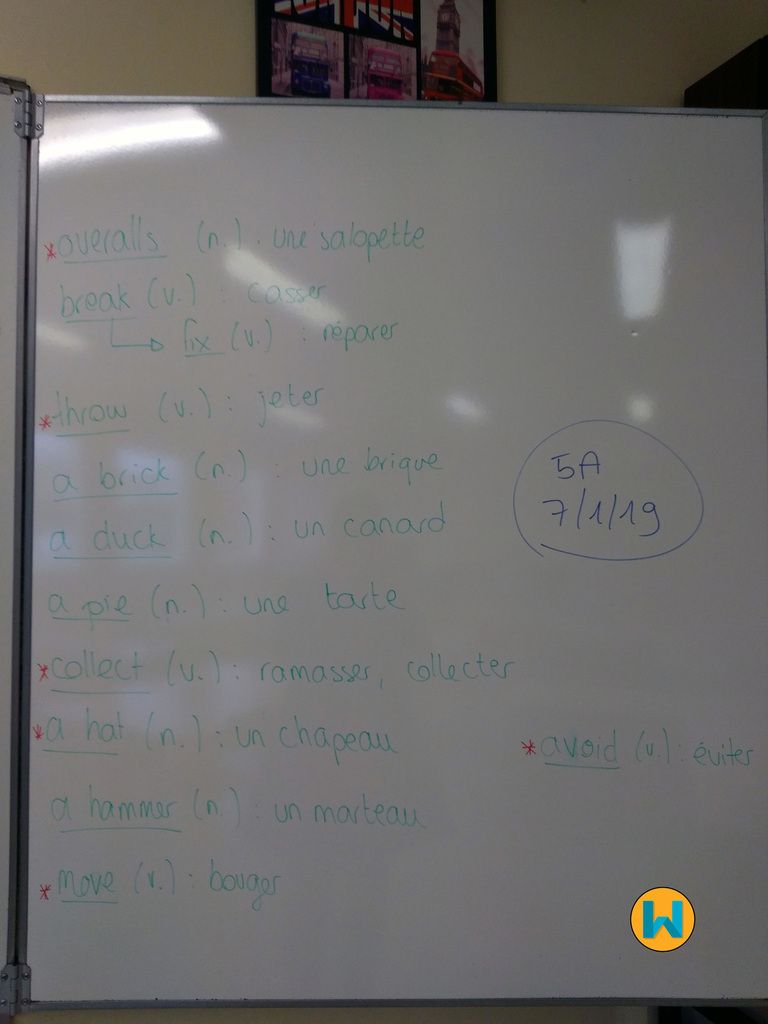 *overalls (n.). une salopette
break (v.) : casser
fix (v.) : réparer
*throw (v.) : jeter
a brick (n.) : une brique
a duck (n.) : un canard
a pie (n.) : une tarte
*collect (v.) : ramasser, collecter
*a hat (n.) : un chapeau
a hammer (n.) : un marteau
*move (v.) : bouger
5A
7/1/19
*avoid (v.) : éviter
W